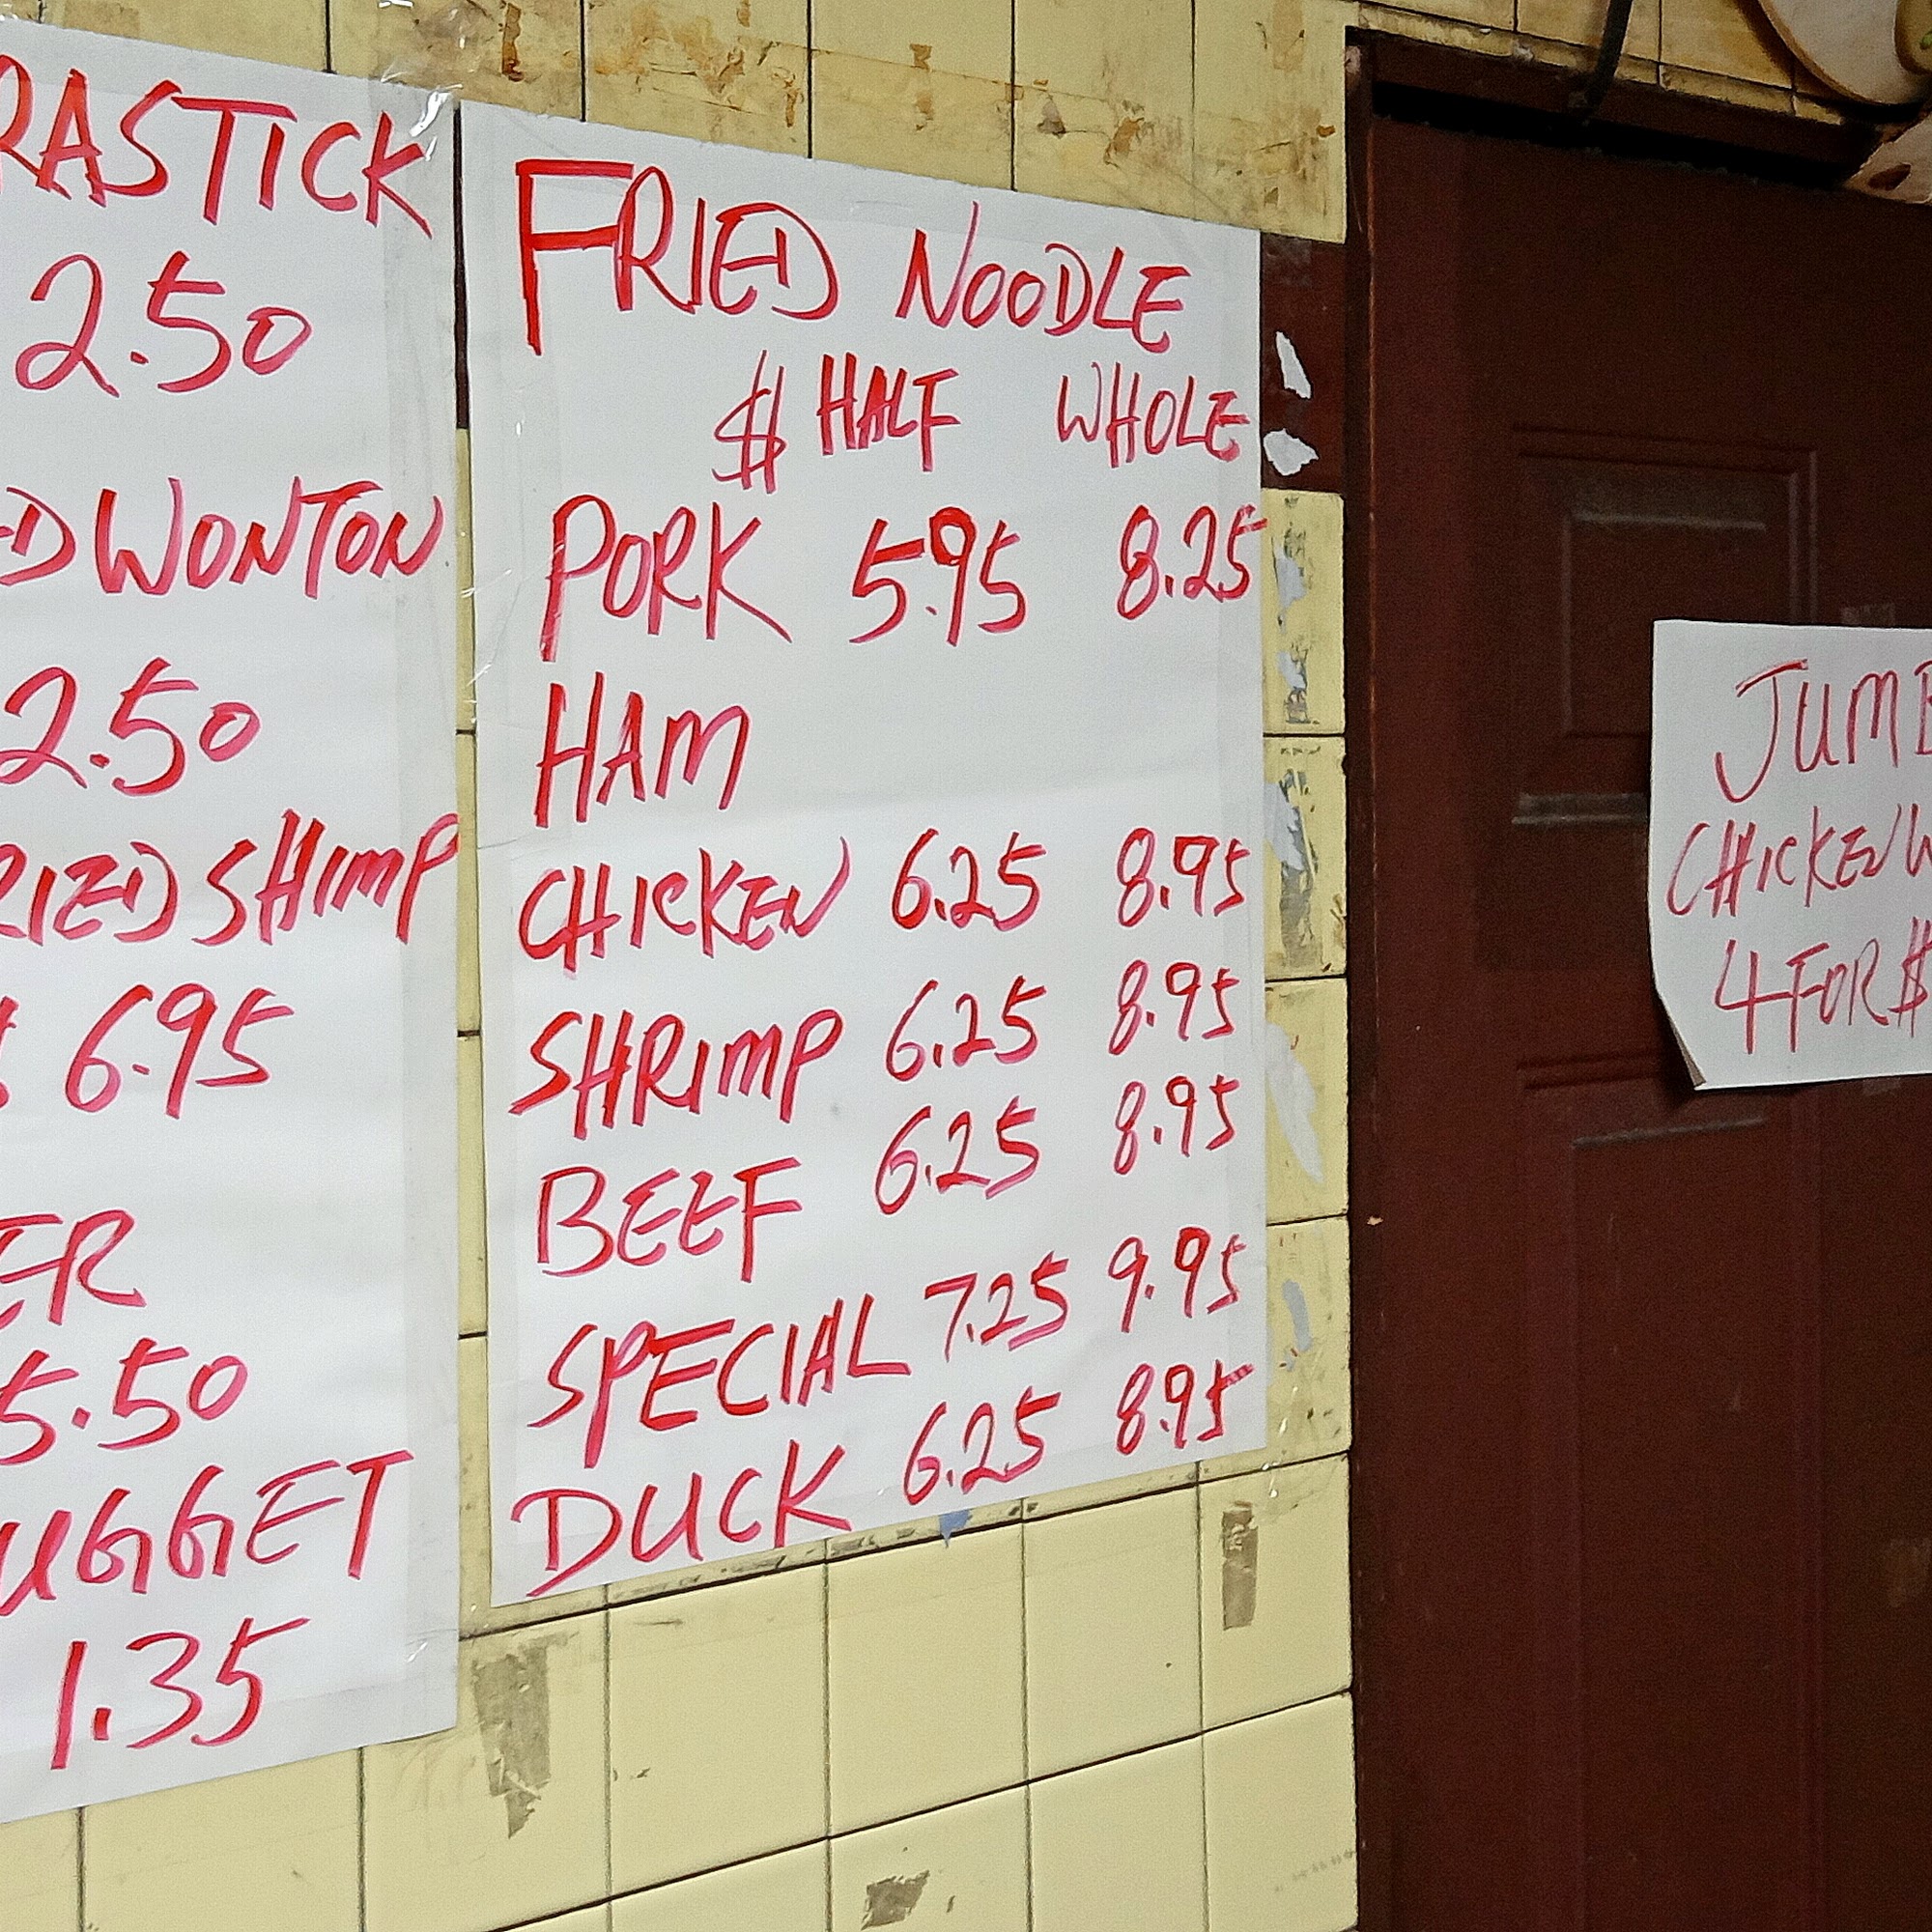 RASTICK
2.50
ED WONTON
2.50
RIED SHIMP
$ 6.95
ER
5.50
UGGET
1.35
FRIED NOODLE
$ HALF WHOLE
PORK 5.95 8.25
HAM
CHICKEN 6.25 8.95
SHRIMP 6.25 8.95
BEEF 6.25 8.95
SPECIAL 7.25 9.95
DUCK 6.25 8.95
JUMB
CHICKEN W
4 FOR $